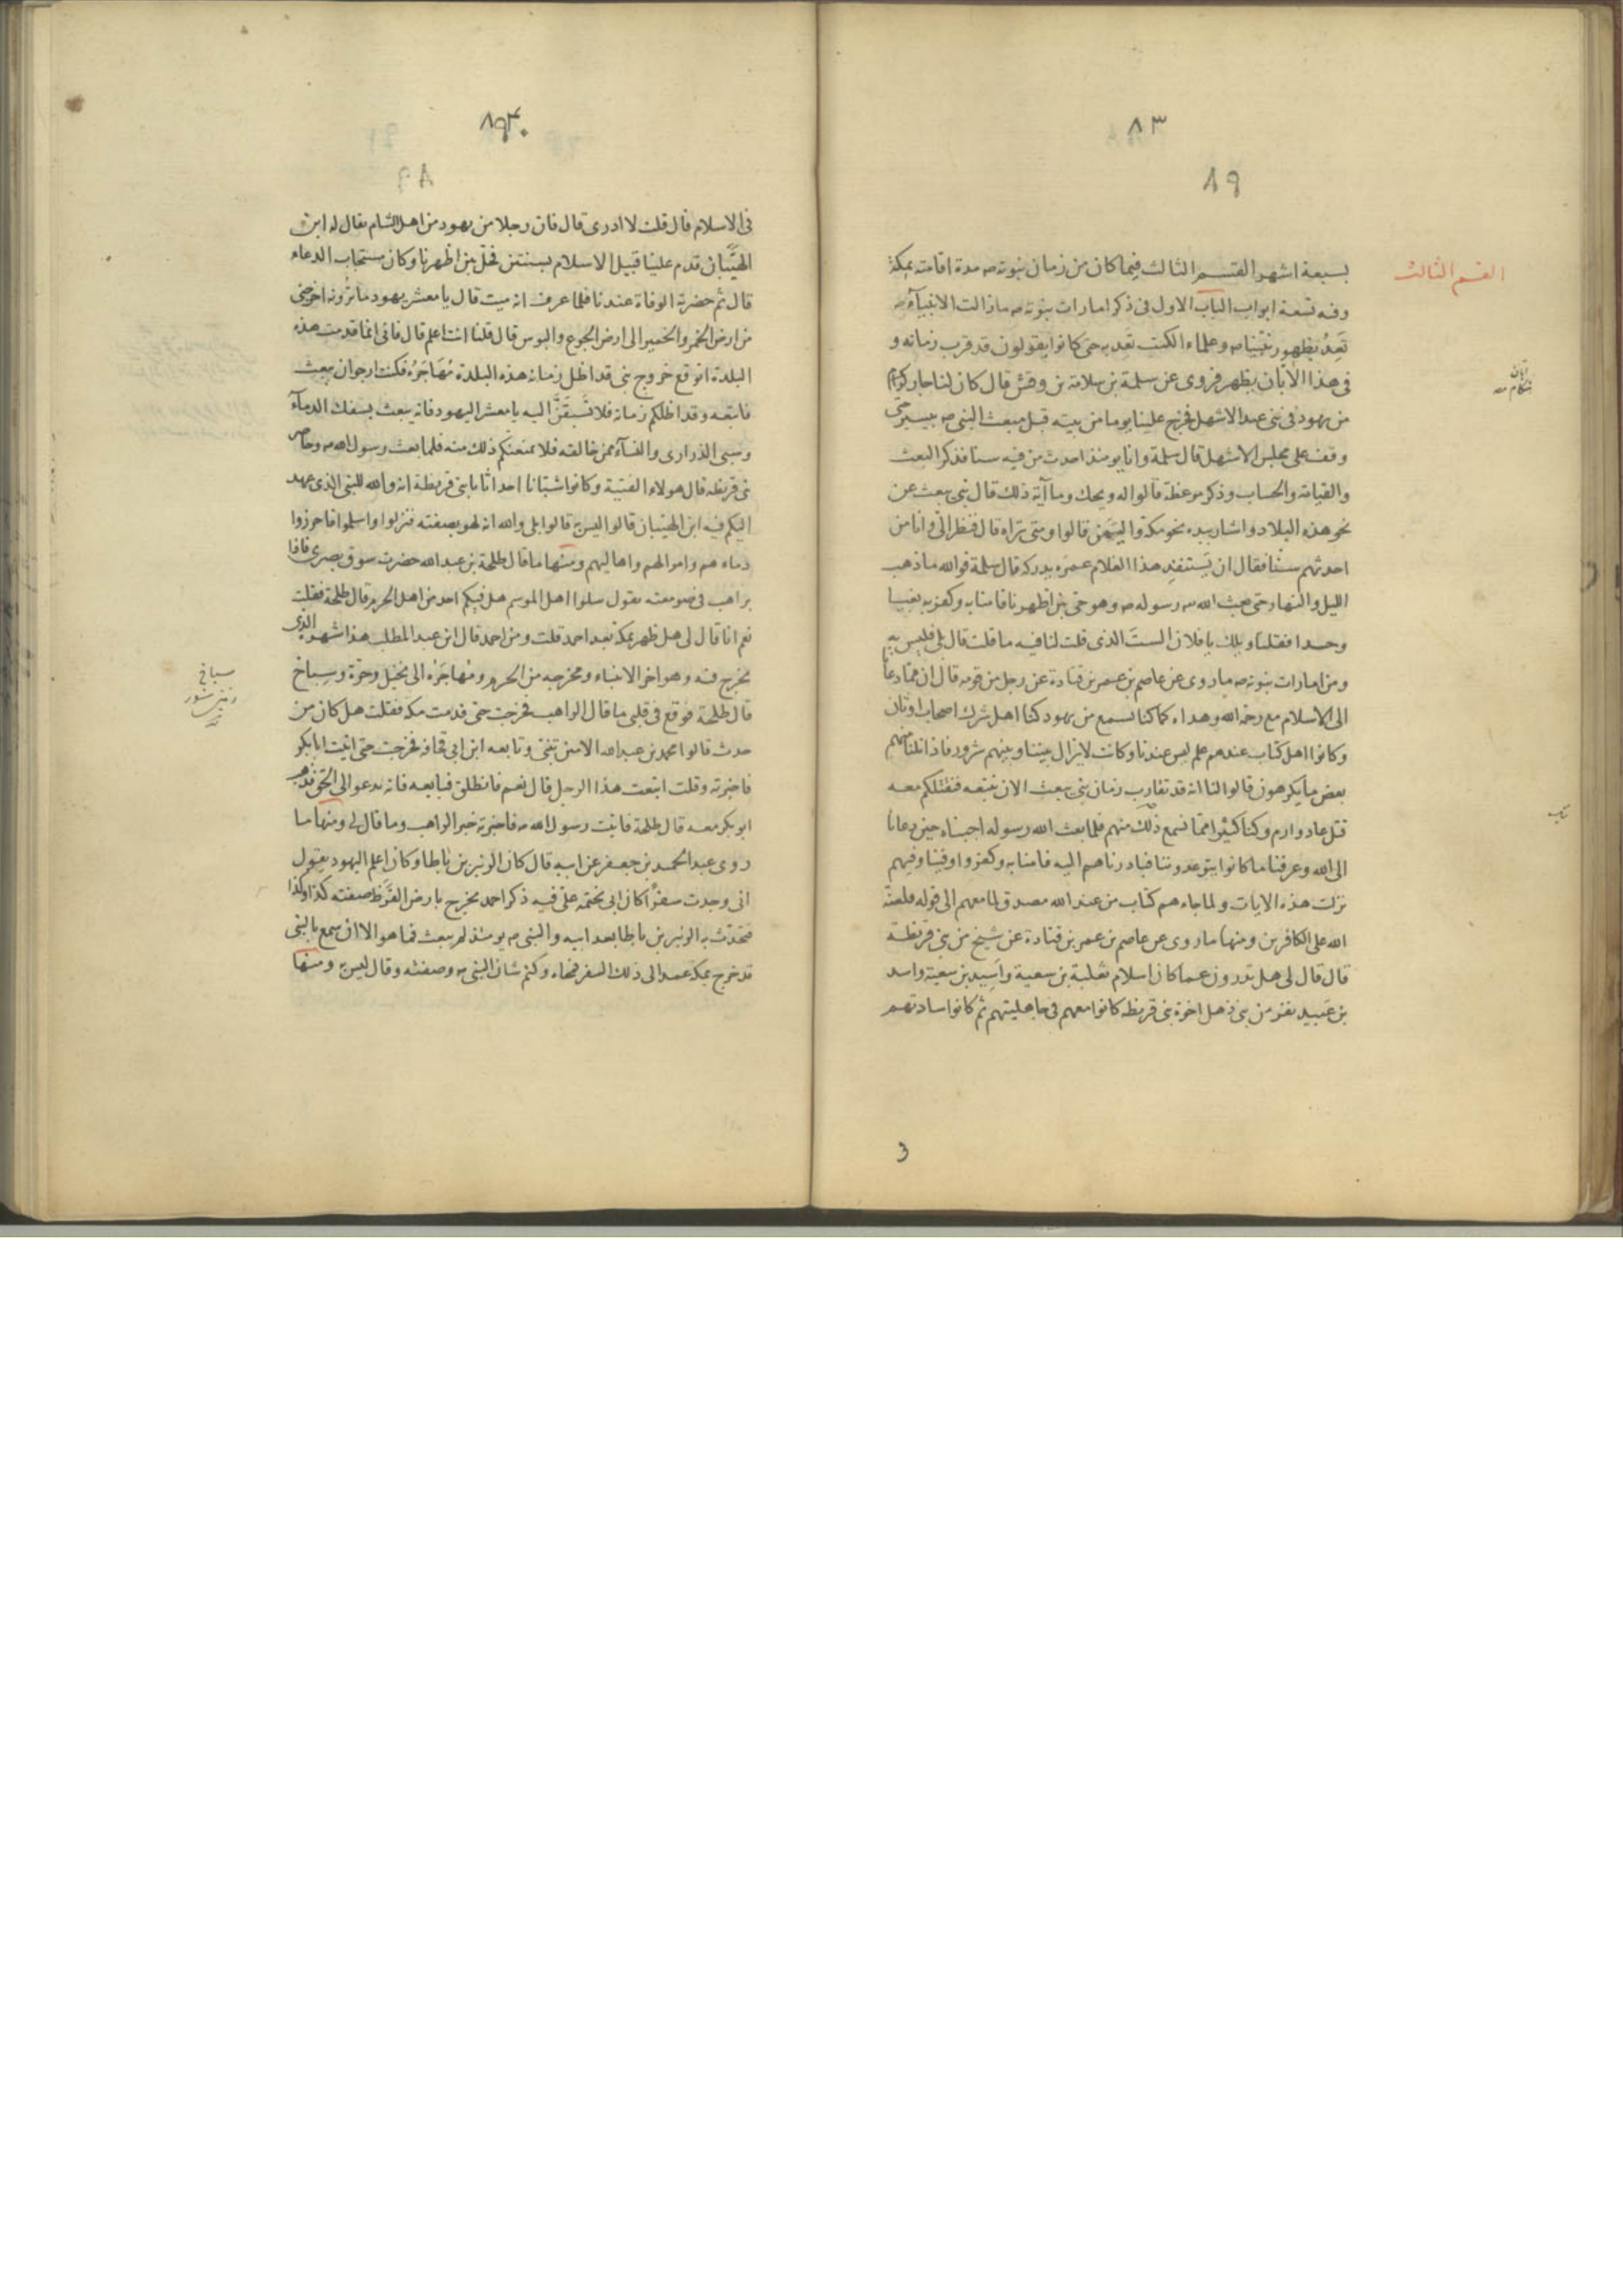 ٨٣
٨٩
القسم الثالث
بسبعة اشهر القسم الثالث فيما كان من زمان نبوته صه مدة اقامته بمكة
وفيه تسعة ابواب الباب الاول فى ذكر امارات نبوته صه مازالت الانبياء
تَعِدُ بظهور نبينا صه وعلماء الكتب تعد به حتى كانوا يقولون قد قرب زمانه و
فى هذا الابّان يظهر فروى عن سلمة بن سلامة بن وقش قال كان لنا جار
من يهود فى بنى عبد الاشهل فخرج علينا يوما من بيته قبل مبعث النبى صه بيسير حتى
وقف على مجلس الاشهل قال سلمة وانا يومئذ احدث من فيه سنا فذكر البعث
والقيامة والحساب وذكر موعظة قالوا له ويحك وما آية ذلك قال نبى يبعث من
نحو هذه البلاد واشار بيده نحو مكة واليَمَن قالوا ومتى تراه قال فنظر الىّ وانا من
احدثهم سنّا فقال ان يَستنفِد هذا الغلام عمرَه يدركه قال سلمة فوالله ماذهب
الليل والنهار حتى بعث الله رسوله صه وهو حى بين اظهرنا فامنا به وكفر به بغيا
وحسدا فقلنا ويلك يا فلان الستَ الذى قلت لنا فيه ما قلت قال بلى فليس به
ومن امارات نبوته صه ماروى عن عاصم بن عمر بن قتادة عن رجل من قومه قال ان ممّا دعانا
الى الاسلام مع رحمة الله وهداه كما كنا نسمع من يهود كنا اهل شرك اصحاب اوثان
وكانوا اهل كتاب عندهم علم ليس عندنا وكانت لايزال بيننا وبينهم شرور فاذا نلنا منهم
بعض مايكرهون قالوا لنا انه قد تقارب زمان نبى يبعث الان نتبعه فنقتلكم معه
قتل عاد وارم وكنا كثيرا ممّا نسمع ذلك منهم فلما بعث الله رسوله اجبناه حين دعانا
الى الله وعرفنا ما كانوا يتوعدوننا فبادرناهم اليه فامنا به وكفروا وفينا وفيهم
نزلت هذه الايات ولما جاءهم كتاب من عند الله مصدق لما معهم الى قوله فلعنة
الله على الكافرين ومنها ماروى عن عاصم بن عمر بن قتادة عن شيخ من بنى قريظة
قال قال لى هل تدرون عما كان اسلام ثعلبة بن سعية واَسِيد بن سعية واسد
بن عبيد نفر من بنى ذهل اخوة بنى قريظه كانوا معهم فى جاهليتهم ثم كانوا سادتهم
ابّان
هنگام
٨٤
٨٩
فى الاسلام قال قلت لا ادرى قال فان رجلا من يهود من اهل الشام يقال له ابن
الهيّبان قدم علينا قبيل الاسلام بسنتين فحلّ بين اظهرنا وكان مستجاب الدعاء
قال ثم حضرته الوفاة عندنا فلما عرف انه ميت قال يا معشر يهود ماترونه اخرجنى
من ارض الخمر والخمير الى ارض الجوع والبوس قال قلنا انت اعلم قال فانى انما قدمت هذه
البلدة اتوقع خروج نبى قد اظل زمانه هذه البلدة مُهَاجَرُه فكنت ارجو ان يبعث
فاتبعه وقد اظلكم زمانه فلا تُسبَقَنَّ اليه يا معشر اليهود فانه يبعث بسفك الدماء
وسبى الذرارى والنساء ممن خالفه فلا يمنعنكم ذلك منه فلما بعث رسول الله صه وحاصر
بنى قريظه قال هولاء الفتية وكانوا شبّانا احداثا يا بنى قريظة انه والله للنبى الذى عهد
اليكم فيه ابن الهيّبان قالوا ليس به قالوا بلى والله انه لهو بصفته فنزلوا واسلموا فاحرزوا
دماءهم واموالهم واهاليهم ومنها ماقال طلحة بن عبد الله حضرت سوق بصرى فاذا
براهب فى صومعته يقول سلوا اهل الموسم هل فيكم احد من اهل الحرم قال طلحة فقلت
نعم انا قال لى هل ظهر بمكة بعد احمد قلت ومن احمد قال ابن عبد المطلب هذا شهره الذى
يخرج فيه وهو اخر الانبياء ومخرجه من الحرم ومُهاجَرُه الى نخيل وحرّة وسباخ
قال طلحة فوقع فى قلبى ما قال الراهب فخرجت حتى قدمت مكه فقلت هل كان من
حدث قالوا محمد بن عبد الله الامين تنبّى وتابعه ابن ابى قحافه فخرجت حتى اتيت ابابكر
فاخبرته وقلت اتبعت هذا الرجل قال نعم فانطلق فبايعه فانه يدعو الى الحق فذهب
ابو بكر معه قال طلحة فاتيت رسول الله صه فاخبرته خبر الراهب وما قال لى ومنها ما
روى عبد الحميد بن جعفر عن ابيه قال كان الزبير بن باطا وكان اعلم اليهود يقول
انى وجدت سفرًا كان ابى يختمه علىّ فيه ذكر احمد يخرج بارض القَرَظ صفته كذا وكذا
فتحدّث به الزبير بن باطا بعد ابيه والنبى صه يومئذ لم يبعث فما هو الا ان سمع بالنبى
قد خرج بمكه عمد الى ذلك السفر فمحاه وكتم شان النبى صه وصفته وقال ليس به ومنها
سباخ
زمين شور